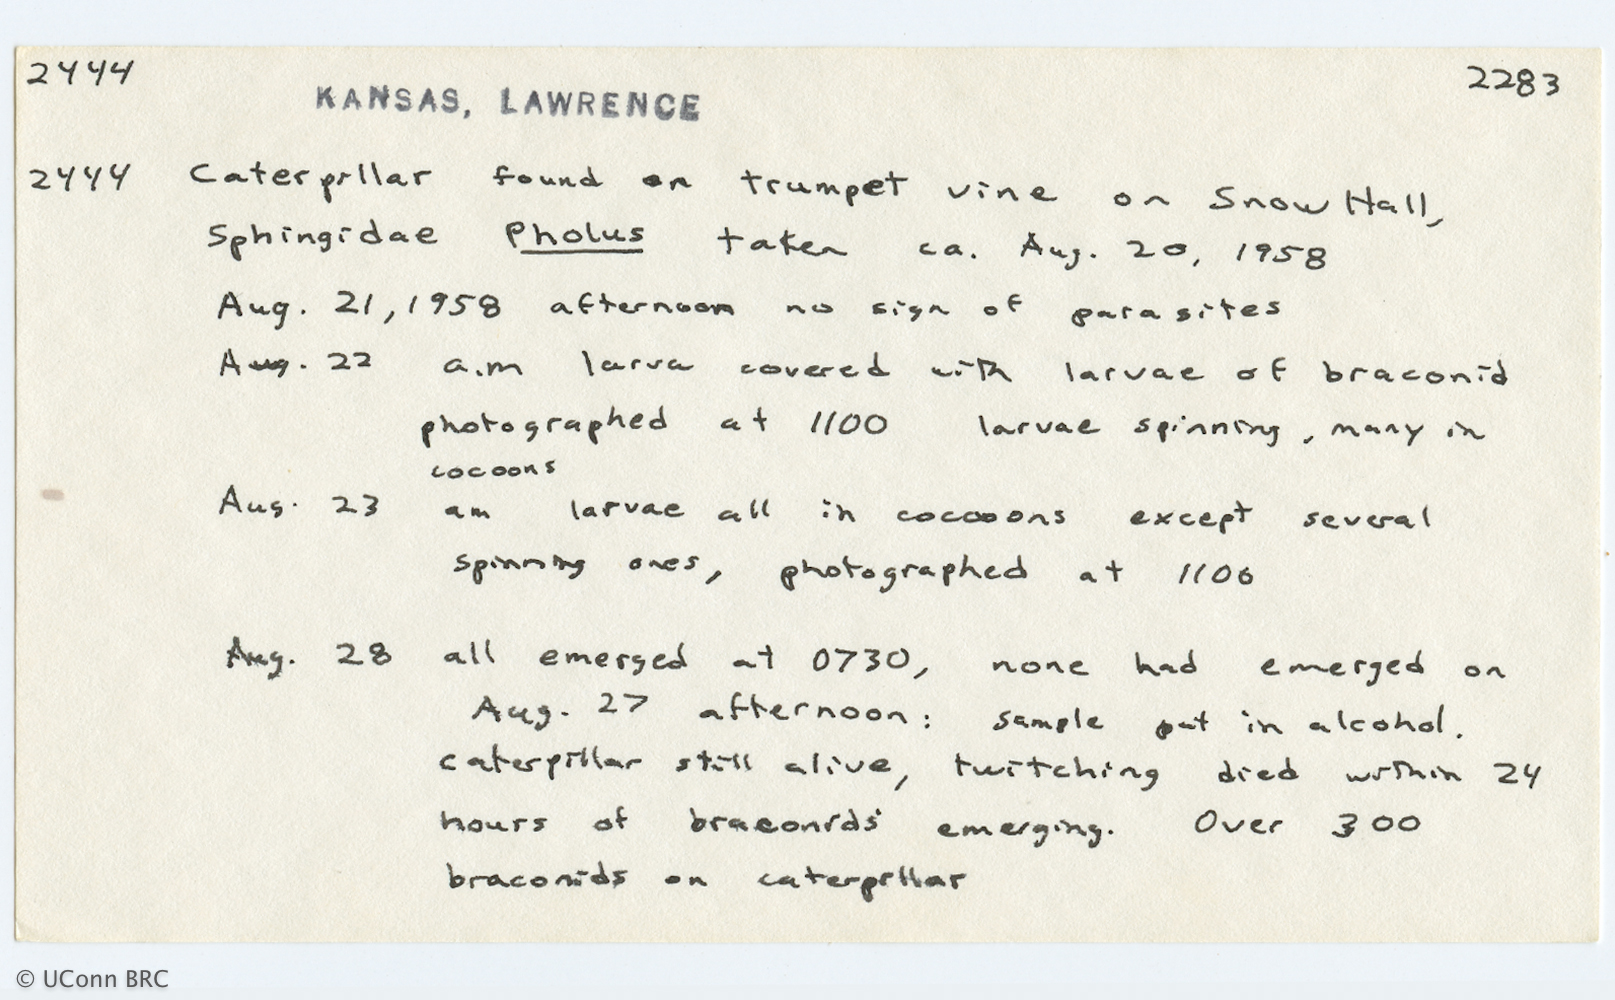 2444 2283
KANSAS, LAWRENCE
2444 Caterpillar found on trumpet vine on Snow Hall,
Sphingidae Pholus taken ca. Aug. 20, 1958
Aug. 21, 1958 afternoon no sign of parasites
Aug. 22 a.m larva covered with larvae of braconid
photographed at 1100 larvae spinning, many in
cocoons
Aug. 23 am larvae all in cocooons except several
spinning ones, photographed at 1100
Aug. 28 all emerged at 0730, none had emerged on
Aug. 27 afternoon: sample put in alcohol.
caterpillar still alive, twitching died within 24
hours of braconids' emerging. Over 300
braconids on caterpillar
© UConn BRC